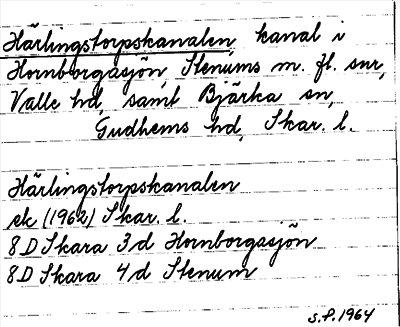 Härlingstorpskanalen, kanal i
Hornborgasjön, Stenums m. fl. snr,
Valle hd, samt Bjärka sn,
Gudhems hd, Skar. l.
Härlingstorpskanalen
ek (1962) Skar. l.
8 D Skara 3d Hornborgasjön
8 D Skara 4d Stenum
S.P. 1964